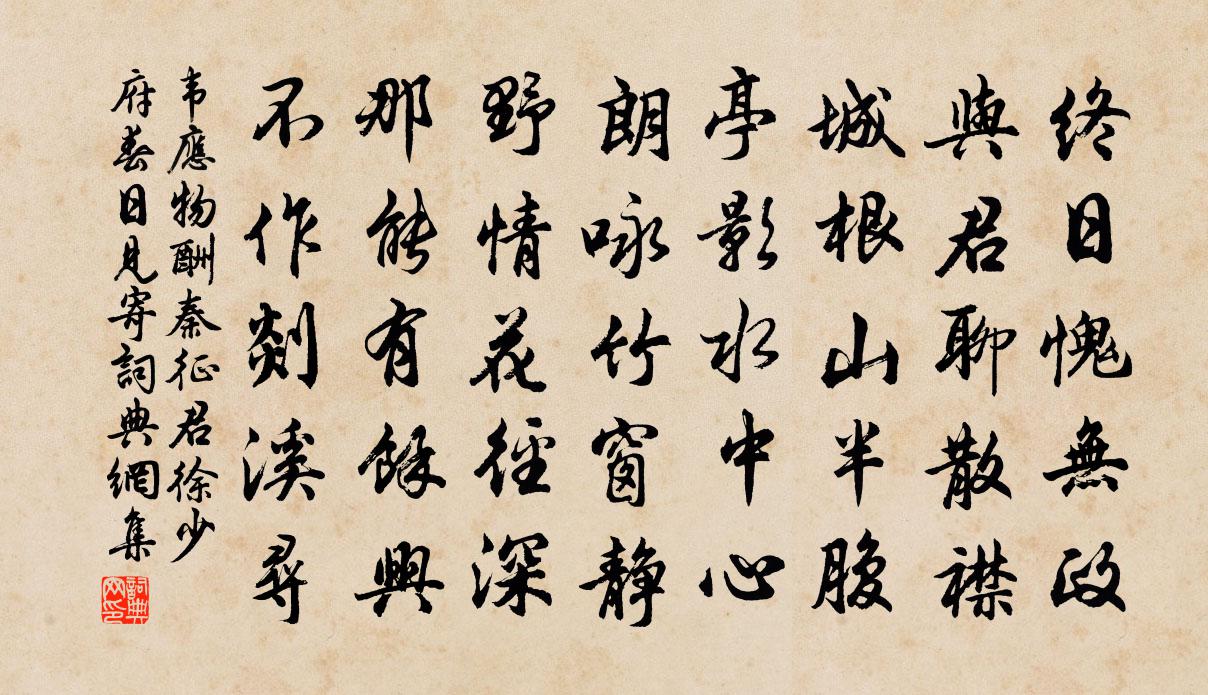 終日愧無政
與君聊散襟
城根山半腹
亭影水中心
朗咏竹窗静
野情花徑深
那能有餘興
不作剡溪尋
韦應物酬秦征君徐少
府春日見寄詞典網集
詞典
网印